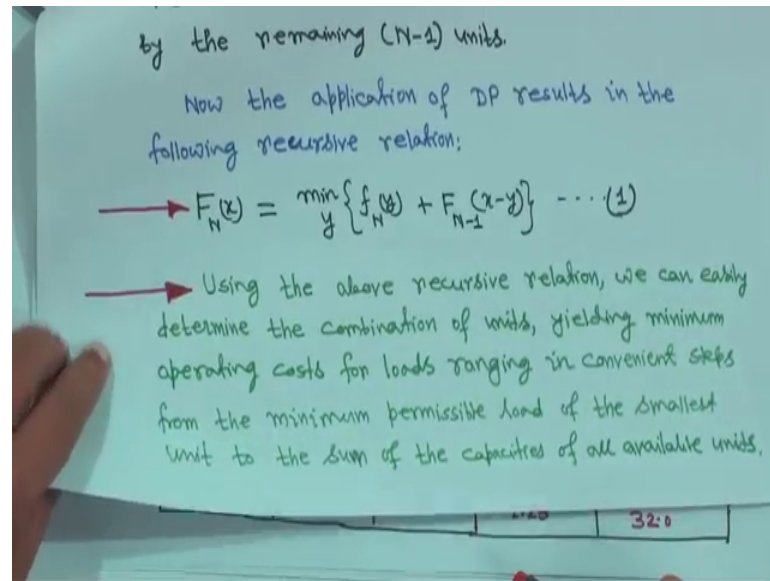 by the remaining (N-1) units.
Now the application of DP results in the
following recursive relation:
F_N(x) = min_y {f_N(y) + F_{N-1}(x-y)} ----(1)
Using the above recursive relation, we can easily
determine the combination of units, yielding minimum
operating costs for loads ranging in convenient steps
from the minimum permissible load of the smallest
unit to the sum of the capacities of all available units.
32.0